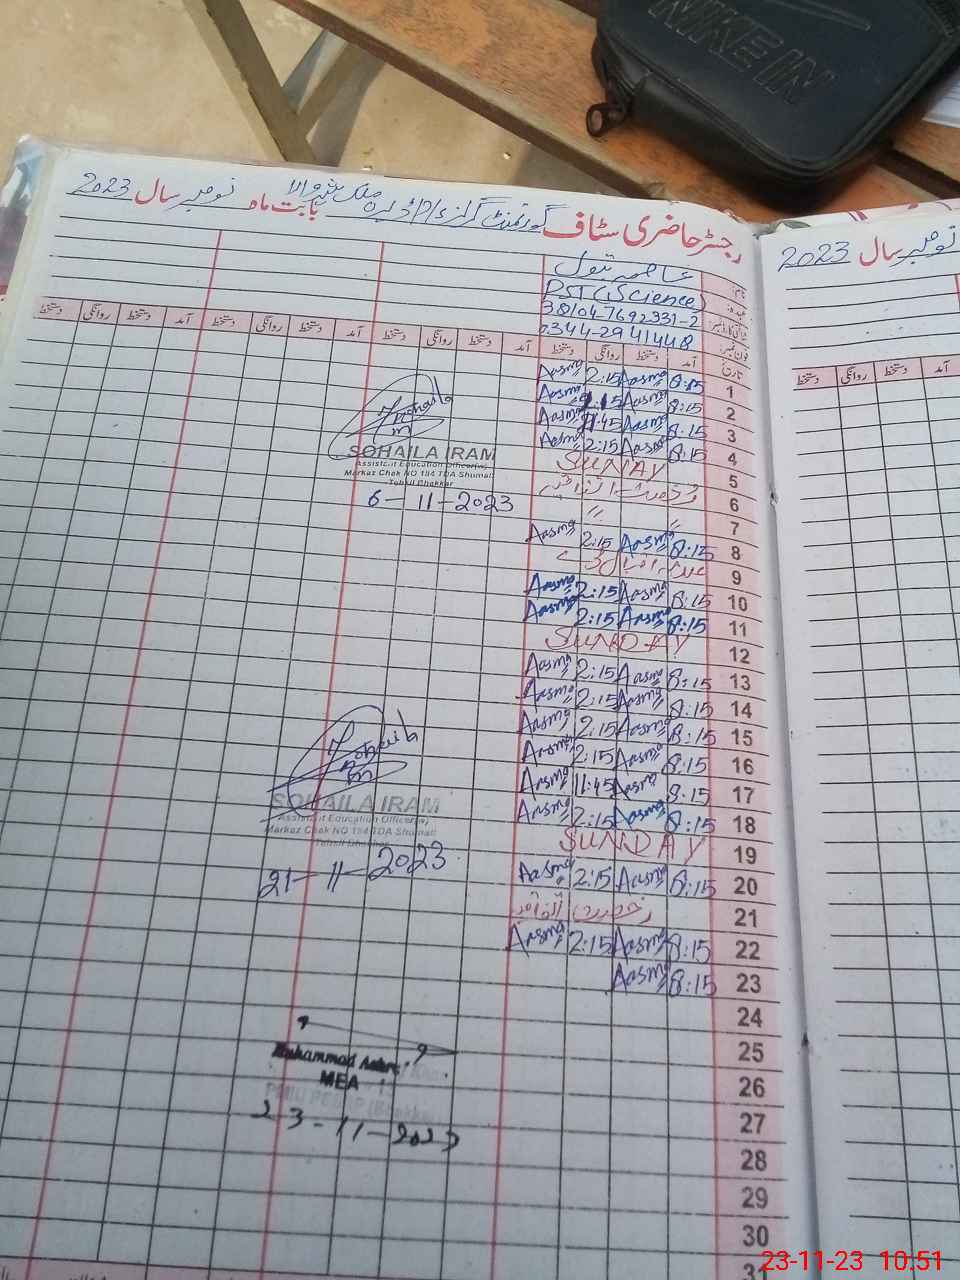 NIKE IN
رجسٹر حاضری سٹاف گورنمنٹ گرلز بابت ماہ نومبر سال 2023
نومبر سال 2023
نام:
PST (Science)
38104-7692331-2
فون نمبر: 0344-2941448
تاریخ آمد دستخط روانگی دستخط آمد دستخط روانگی دستخط آمد دستخط روانگی دستخط آمد دستخط روانگی دستخط
آمد دستخط روانگی دستخط
1 8:15 Aasma 2:15 Aasma
2 8:15 Aasma Aasma
3 8:15 Aasma 11:45 Aasma
4 8:15 Aasma 2:15 Aasma
5 SUNAY
6 رخصت اتفاقیہ
7 " "
8 8:15 Aasma 2:15 Aasma
9
10 8:15 Aasma 2:15 Aasma
11 8:15 Aasma 2:15 Aasma
12 SUNDAY
13 8:15 Aasma 2:15 Aasma
14 8:15 Aasma 2:15 Aasma
15 8:15 Aasma 2:15 Aasma
16 8:15 Aasma 2:15 Aasma
17 8:15 Aasma 11:45 Aasma
18 8:15 Aasma 2:15 Aasma
19 SUNDAY
20 8:15 Aasma 2:15 Aasma
21 رخصت اتفاقیہ
22 8:15 Aasma 2:15 Aasma
23 8:15 Aasma
24
25
26
27
28
29
30
31
SOHAILA IRAM
Assistant Education Officer(w)
Markaz Chak NO 154 TDA Shumali
Tehsil Bhakkar
6-11-2023
SOHAILA IRAM
Assistant Education Officer(w)
Markaz Chak NO 154 TDA Shumali
Tehsil Bhakkar
21-11-2023
Muhammad
MEA
23-11-2023
23-11-23 10.51